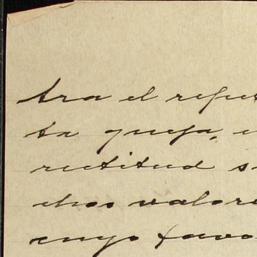 tra el refut
ta queja, e
rectitud s
chos valore
cuyo favo